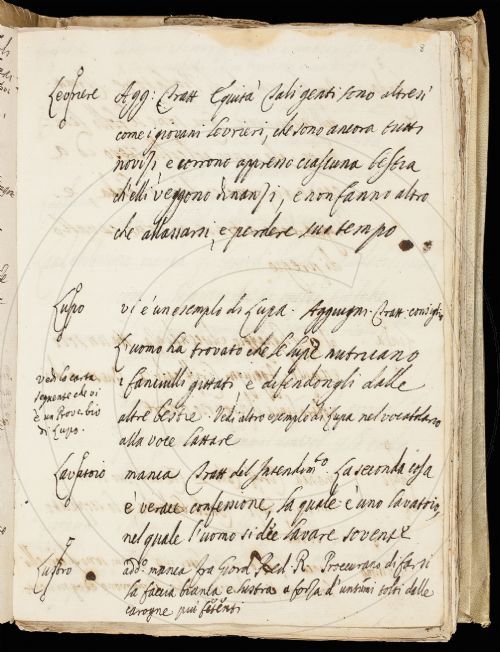 8
Levriere Agg: Tratt Equità Tali genti sono altresì
come i giovani levrieri, che sono ancora tutti
novizi e corrono appresso ciascuna bestia
ch'elli veggono dinanzi, e non fanno altro
che allassarsi, e perdere suo tempo
Lupo vi è un esemplo di Lupa. Aggiugni. Tratt. consigl.
L'uomo ha trovato che le lupe nutricano
i fanciulli gittati e difendongli dalle
altre bestie. Vedi altro esemplo di Lupa nel vocabolario
alla voce lattare
vedi la carta
seguente che vi
è un Proverbio
di Lupo.
Lavatoio manca Tratt del Intendim.to La seconda cosa
è verace confessione, la quale è uno lavatoio,
nel quale l'uomo si dee lavare sovente
Lustro add. manca fra Giord. Pred. R. Proccurano di farsi
la faccia bianca e lustra a forza d'untumi tolti dalle
carogne più fetenti